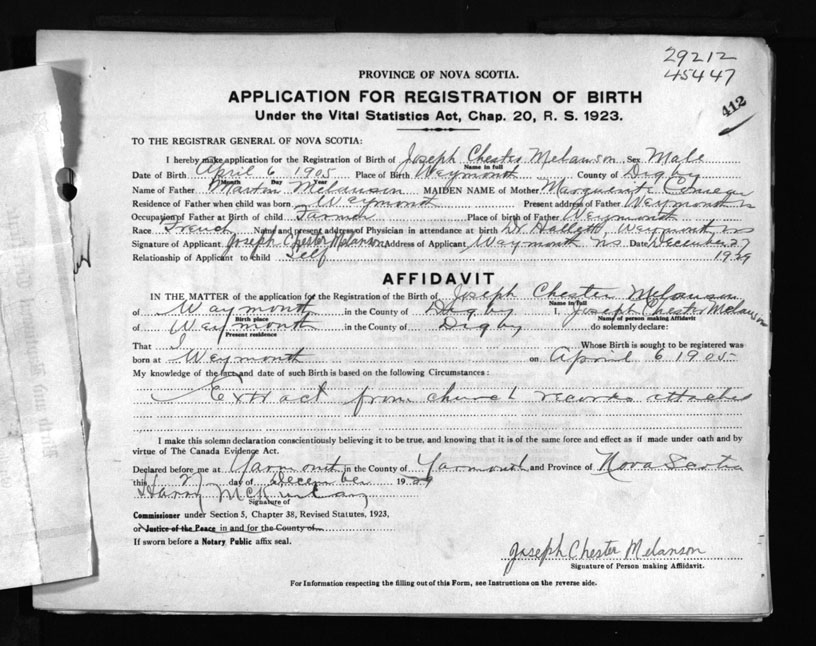 29212
45447
412
PROVINCE OF NOVA SCOTIA.
APPLICATION FOR REGISTRATION OF BIRTH
Under the Vital Statistics Act, Chap. 20, R. S. 1923.
TO THE REGISTRAR GENERAL OF NOVA SCOTIA:
I hereby make application for the Registration of Birth of Joseph Chester Melanson Sex Male
Name in full
Date of Birth April 6 1905 Place of Birth Weymouth County of Digby
Month Day Year
Name of Father Melanson MAIDEN NAME of Mother Marguerite Comeau
Residence of Father when child was born Weymouth Present address of Father Weymouth
Occupation of Father at Birth of child Farmer Place of birth of Father Weymouth
Race French Name and present address of Physician in attendance at birth Dr Hallett, Weymouth, NS
Signature of Applicant Joseph Chester Melanson Address of Applicant Weymouth NS Date December 27
Relationship of Applicant to child Self 1929
AFFIDAVIT
IN THE MATTER of the application for the Registration of the Birth of Joseph Chester Melanson
Name in full
of Waymouth in the County of Digby I, Joseph Chester Melanson
Birth place Name of person making Affidavit
of Weymouth in the County of Digby do solemnly declare:
Present residence
That I Whose Birth is sought to be registered was
born at Weymouth on April 6 1905
My knowledge of the fact and date of such Birth is based on the following Circumstances:
Extract from church records attached
I make this solemn declaration conscientiously believing it to be true, and knowing that it is of the same force and effect as if made under oath and by
virtue of The Canada Evidence Act.
Declared before me at Yarmouth in the County of Yarmouth and Province of Nova Scotia
this 27 day of December 1929
Harry
Signature of
Commissioner under Section 5, Chapter 38, Revised Statutes, 1923,
or Justice of the Peace in and for the County of
If sworn before a Notary Public affix seal.
Joseph Chester Melanson
Signature of Person making Affidavit.
For Information respecting the filling out of this Form, see Instructions on the reverse side.